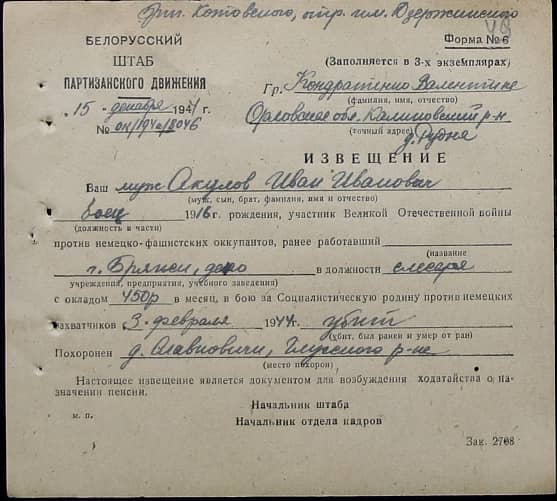 Бриг. Котовского, отр. им. Дзержинского
БЕЛОРУССКИЙ
ШТАБ
ПАРТИЗАНСКОГО ДВИЖЕНИЯ
15 декабря 194 г.
№
Форма № 6
(Заполняется в 3-х экземплярах)
Гр. Кондратенко Валентине
(фамилия, имя, отчество)
Орловская обл. Калиновский р-н
(точный адрес)
д. Рудня
ИЗВЕЩЕНИЕ
Ваш муж Акулов Иван Иванович
(муж, сын, брат, фамилия, имя и отчество)
боец 1916 г. рождения, участник Великой Отечественной войны
(должность в части)
против немецко-фашистских оккупантов, ранее работавший
(название
г. Брянск, депо в должности слесаря
учреждения, предприятия, учебного заведения)
с окладом 450р в месяц, в бою за Социалистическую родину против немецких
захватчиков 3 февраля 1944 г. убит
(убит, был ранен и умер от ран)
Похоронен д. Славковичи, Глусского р-на
(место похорон)
Настоящее извещение является документом для возбуждения ходатайства о на-
значении пенсии.
Начальник штаба
м. п.
Начальник отдела кадров
Зак. 2708